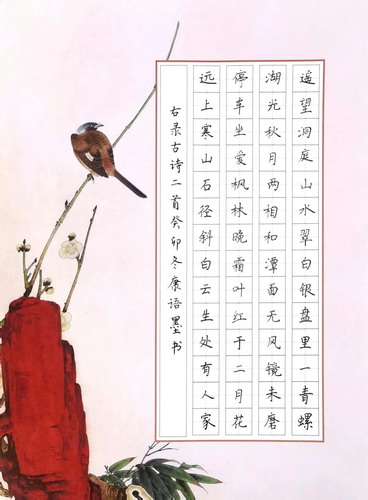 遥望洞庭山水翠白银盘里一青螺
湖光秋月两相和潭面无风镜未磨
停车坐爱枫林晚霜叶红于二月花
远上寒山石径斜白云生处有人家
右录古诗二首癸卯冬康语墨书